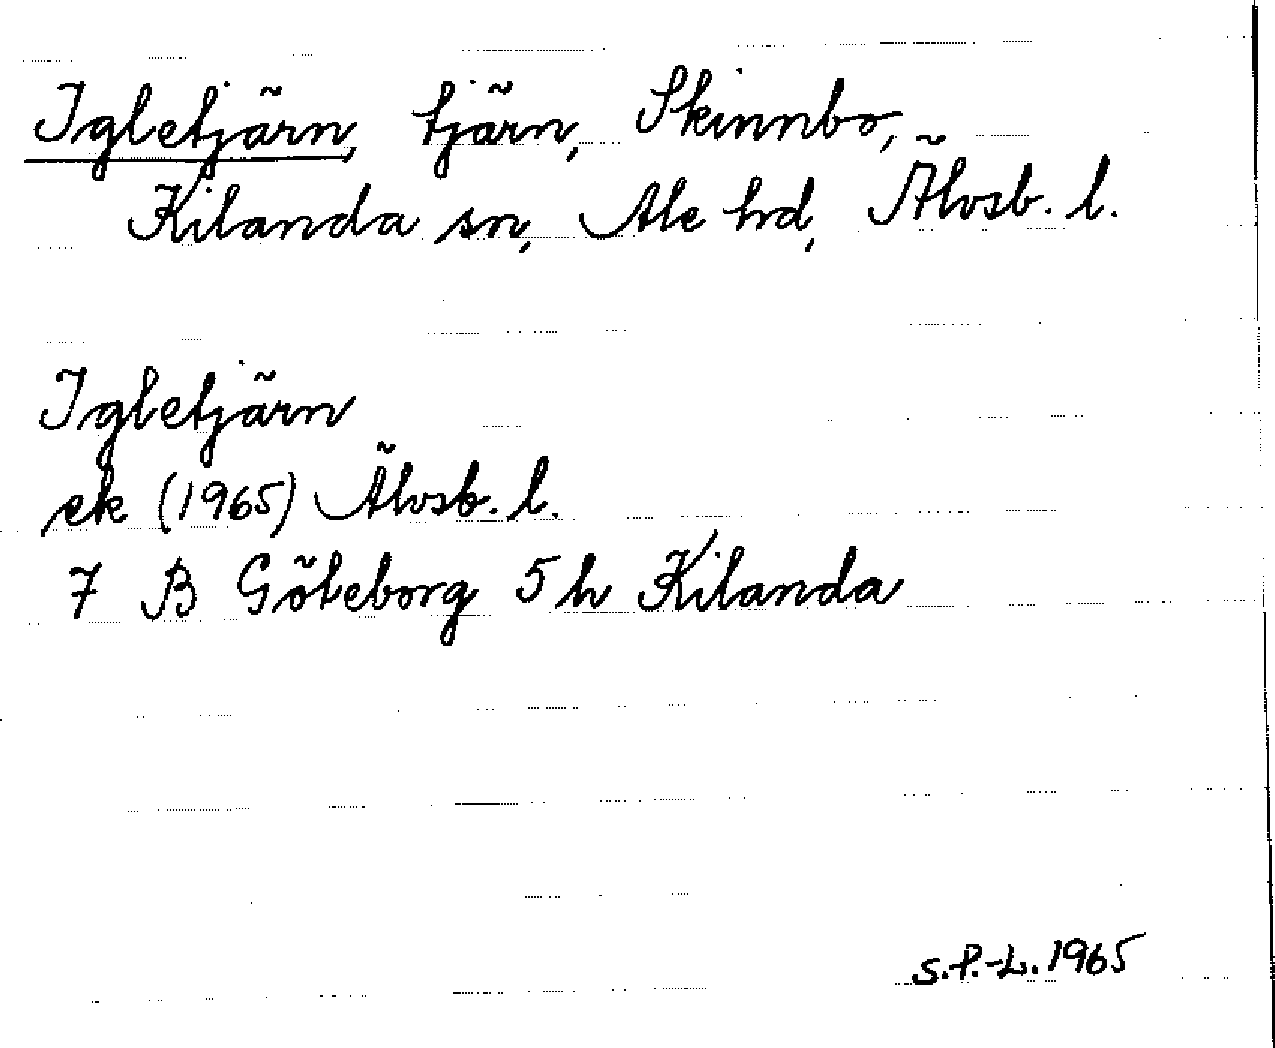 Igletjärn, tjärn, Skinnbo,
Kilanda sn, Ale hd, Älvsb. l.
Igletjärn
ek (1965) Älvsb. l.
7 B Göteborg 5 h Kilanda
S.P.-L. 1965